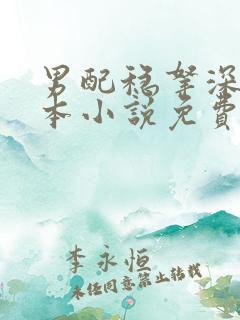 男配稳拿深
本小说免费
李永恒
未经同意禁止转载